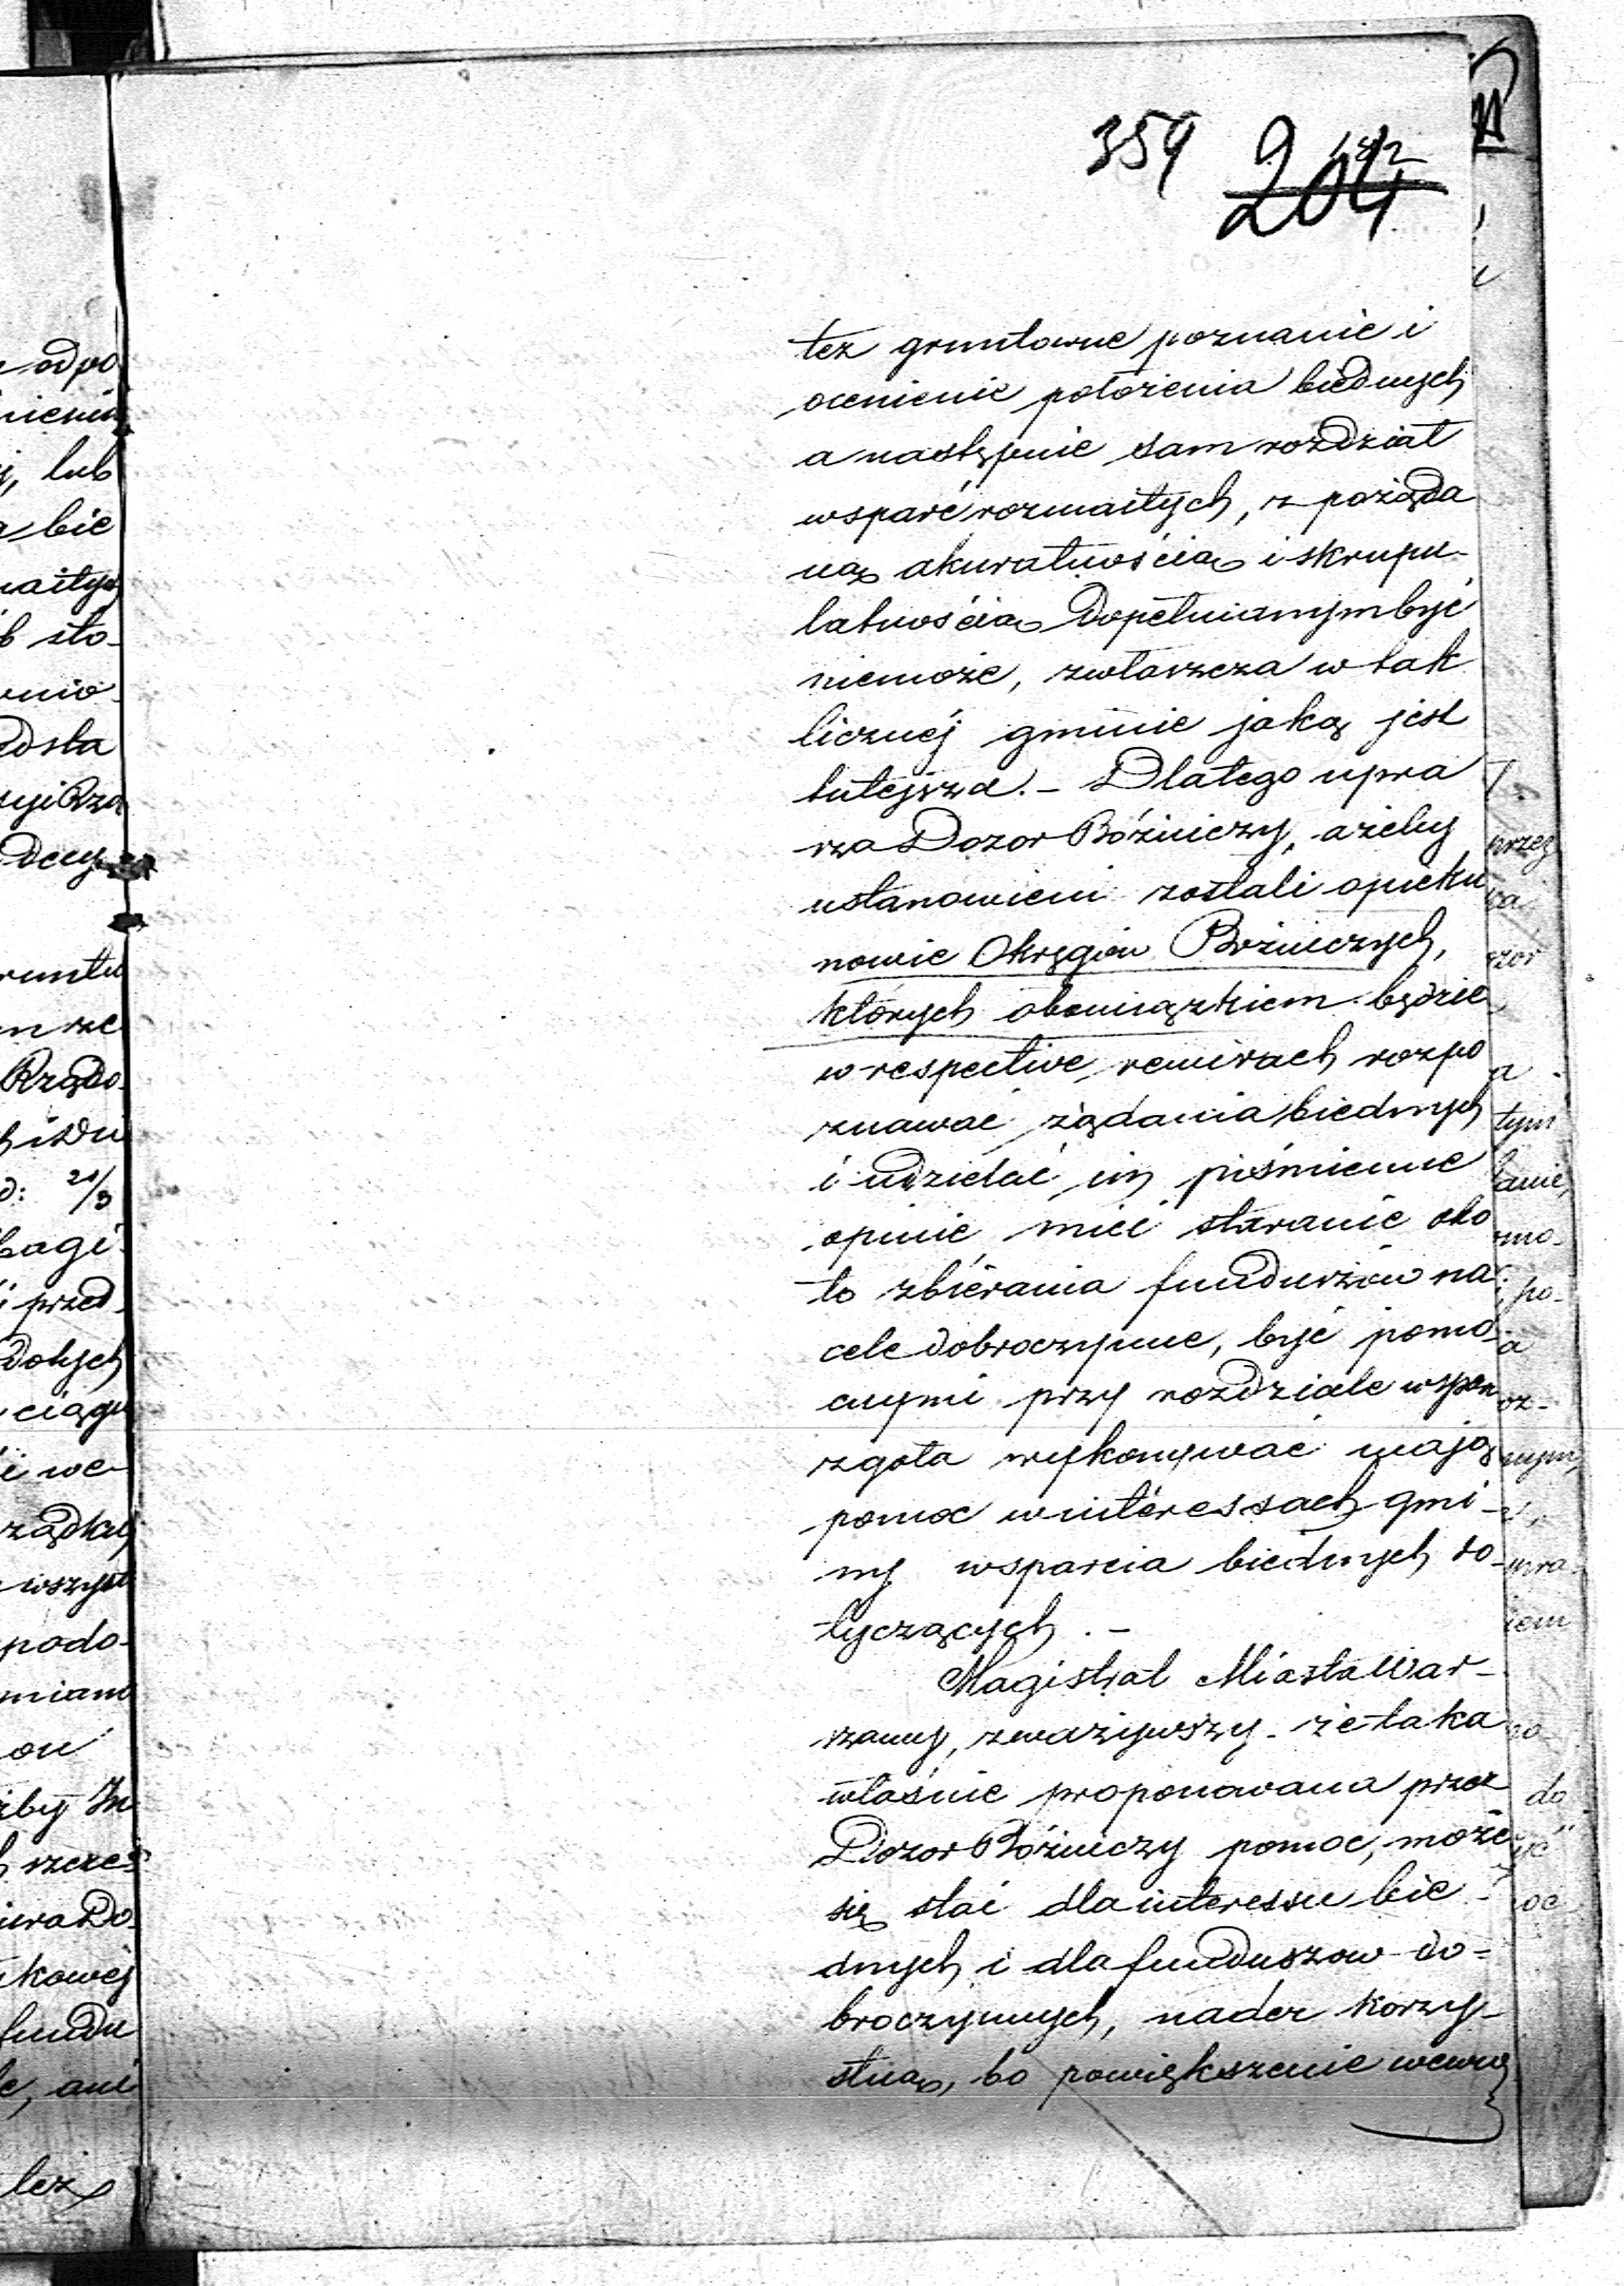 359 204 182
też gruntowne poznanie i
ocenienie położenia biednych
a następnie sam rozdział
wsparć rozmaitych, z pożąda
ną akuratnością i skrupu-
latnością dopełnianym być
niemoże, zwłaszcza w tak
licznéj gminie jaką jest
tutejsza. – Dlatego upra
sza Dozor Bóżniczy, ażeby
ustanowieni zostali opieku
nowie Okręgów Bożniczych,
których obowiązkiem będzie
w respective rewirach rozpo
znawać żądania biednych
i udzielać im piśmienne
opinie mieć staranie oko
ło zbiérania funduszów na
cele dobroczynne, być pomo-
cnymi przy rozdziale wspar
zgoła wykonywać mają
pomoc w intéressach gmi-
ny wsparcia biednych do-
tyczących. –
Magistrat Miasta War-
szawy, zważywszy że taka
właśnie proponowana przez
Dozor Bóżniczy pomoc, może
się stać dla interessu bie-
dnych i dla funduszow do-
broczynnych, nader korzy-
stną, bo powiększenie wewnę
odpo
lub
bie
sto-
Rządo-
21/3
i przed
ciągu
podo-
fundu
ani
też
przez
tym
do